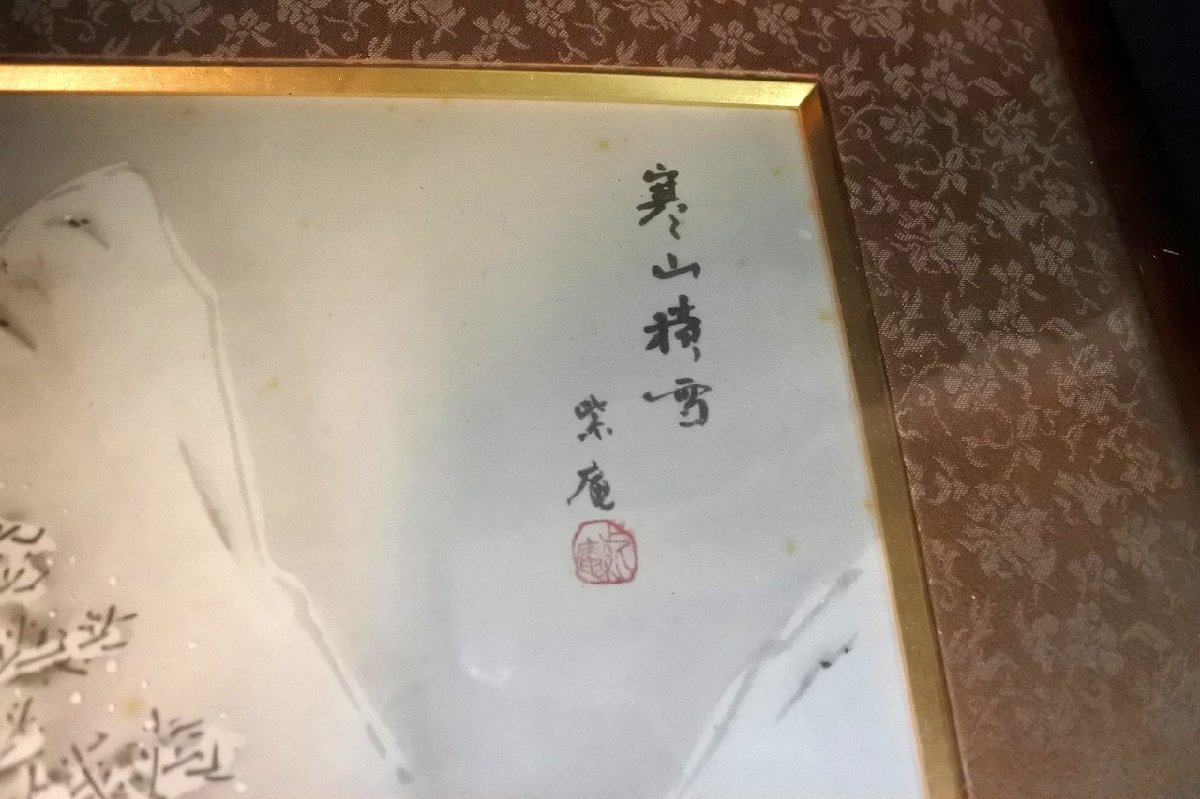 寒山積雪
紫庵